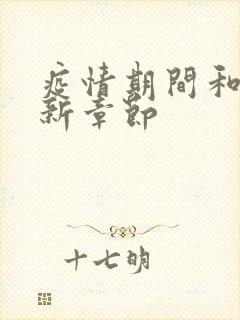 疫情期間和
新章節
十七明